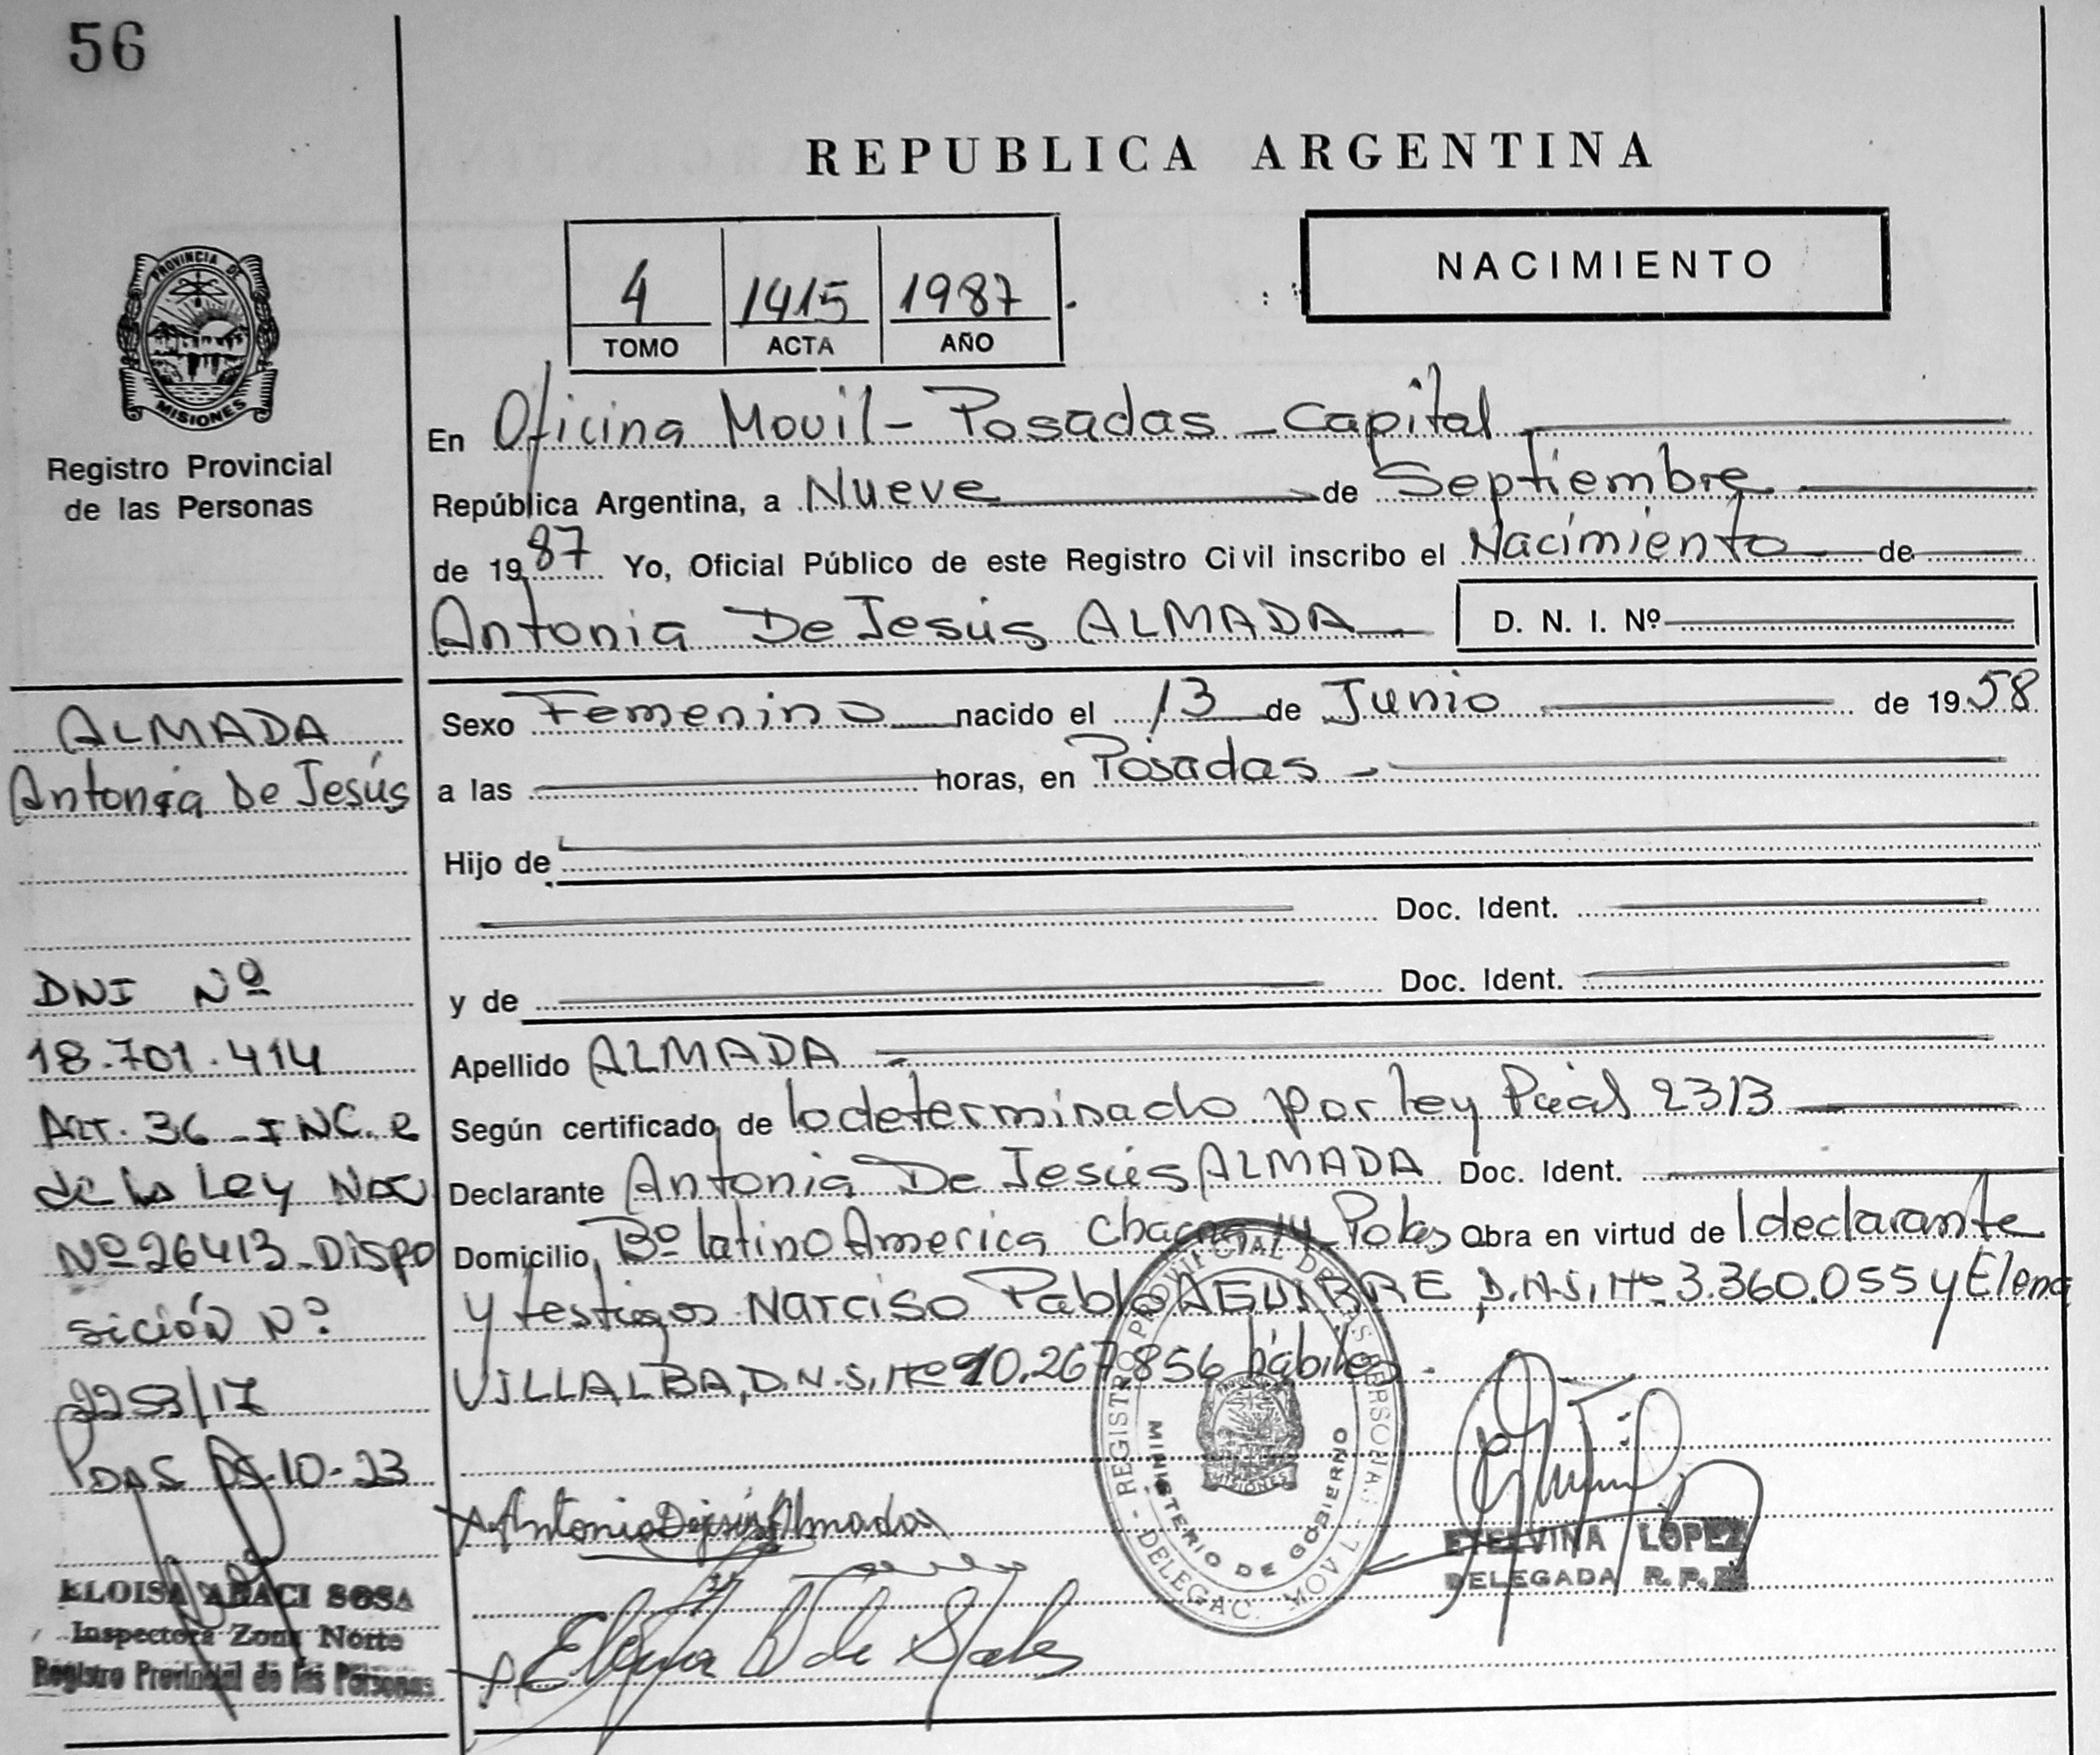 56
REPUBLICA ARGENTINA
4 1415 1987
TOMO ACTA AÑO
NACIMIENTO
PROVINCIA DE
MISIONES
Registro Provincial
de las Personas
En Oficina Movil - Posadas - Capital
República Argentina, a Nueve de Septiembre
de 1987 Yo, Oficial Público de este Registro Civil inscribo el Nacimiento de
Antonia De Jesús ALMADA D. N. I. Nº
Sexo Femenino nacido el 13 de Junio de 1958
a las horas, en Posadas
Hijo de
Doc. Ident.
y de Doc. Ident.
Apellido ALMADA
Según certificado de lo determinado por ley Pcial 2313
Declarante Antonia De Jesús ALMADA Doc. Ident.
Domicilio Bº latino America Chacra 14 Pdas Obra en virtud de l declarante
y testigos Narciso Pablo AGUIRRE, D.N.I. Nº 3.360.055 y Elena
VILLALBA, D.N.I. Nº 10.267.856 hábiles.
ALMADA
Antonia De Jesús
DNI Nº
18.701.414
Art. 36 - INC. e
de la Ley Nac
Nº 26413 - Dispo
sición Nº
2253/17
PDAS 05-10-23
ELOISA ABACI SOSA
Inspectora Zona Norte
Registro Provincial de las Personas
Antonia De jesús Almada
Elena V de
REGISTRO PROVINCIAL DE LAS PERSONAS - DELEGAC. MOVIL
MINISTERIO DE GOBIERNO
MISIONES
ETELVINA LOPEZ
DELEGADA R. P. P.